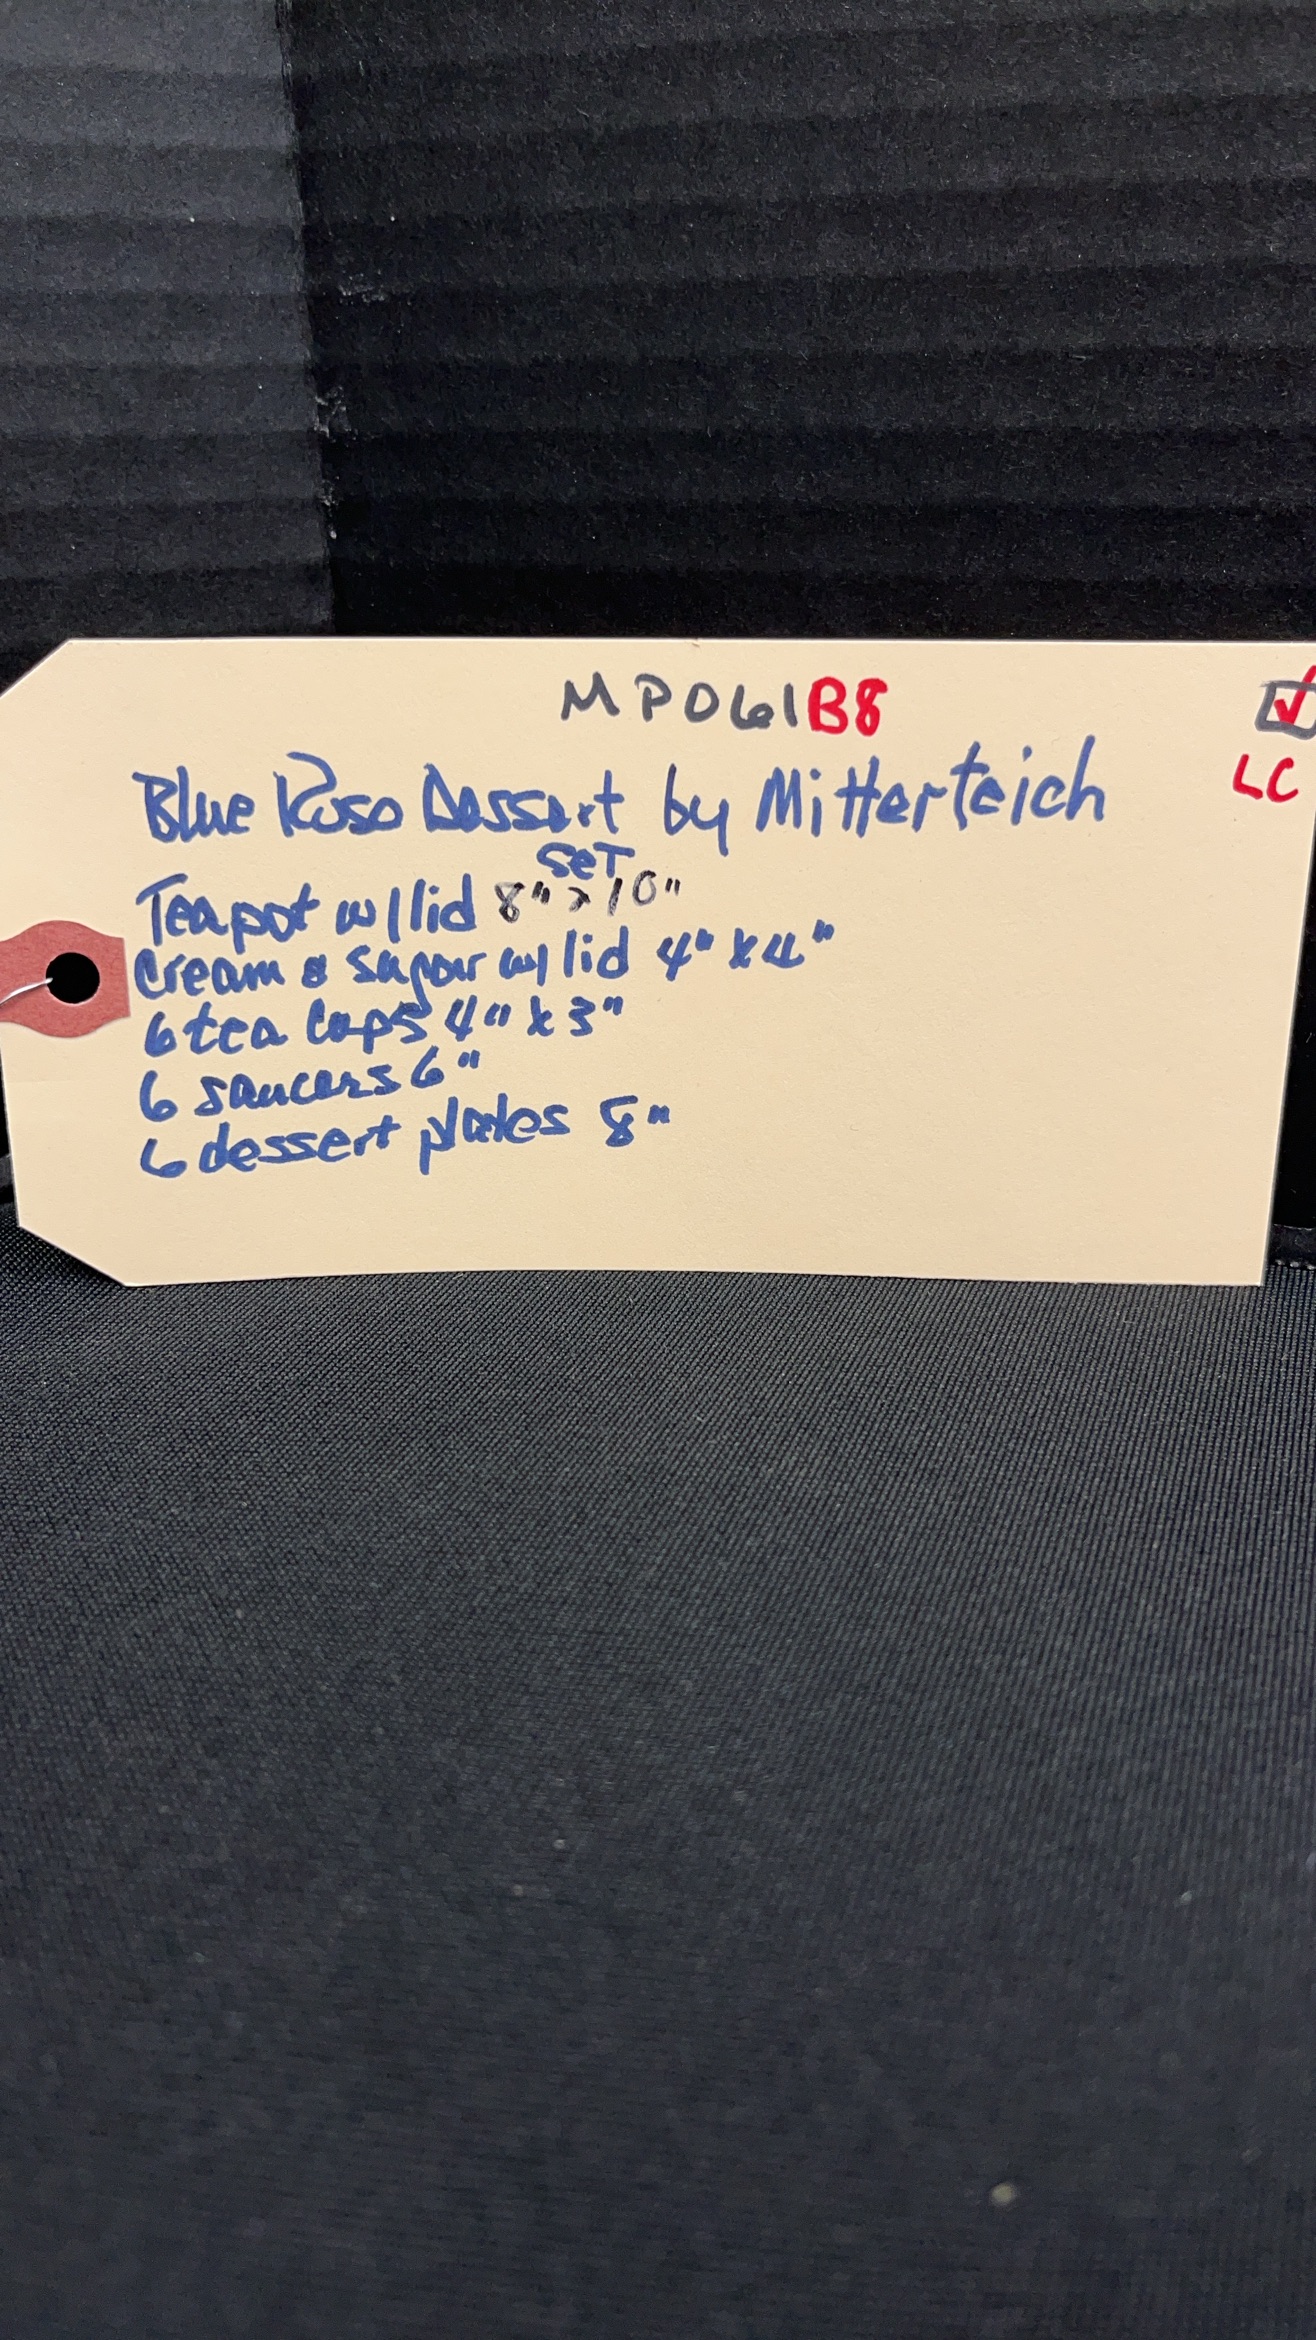 MP061B8
LC
Blue Rose Dessert by Mitterteich
SeT
Teapot w/lid 8" x 10"
Cream & Sugar w/ lid 4" x 4"
6 tea cups 4" x 3"
6 saucers 6"
6 dessert plates 8"